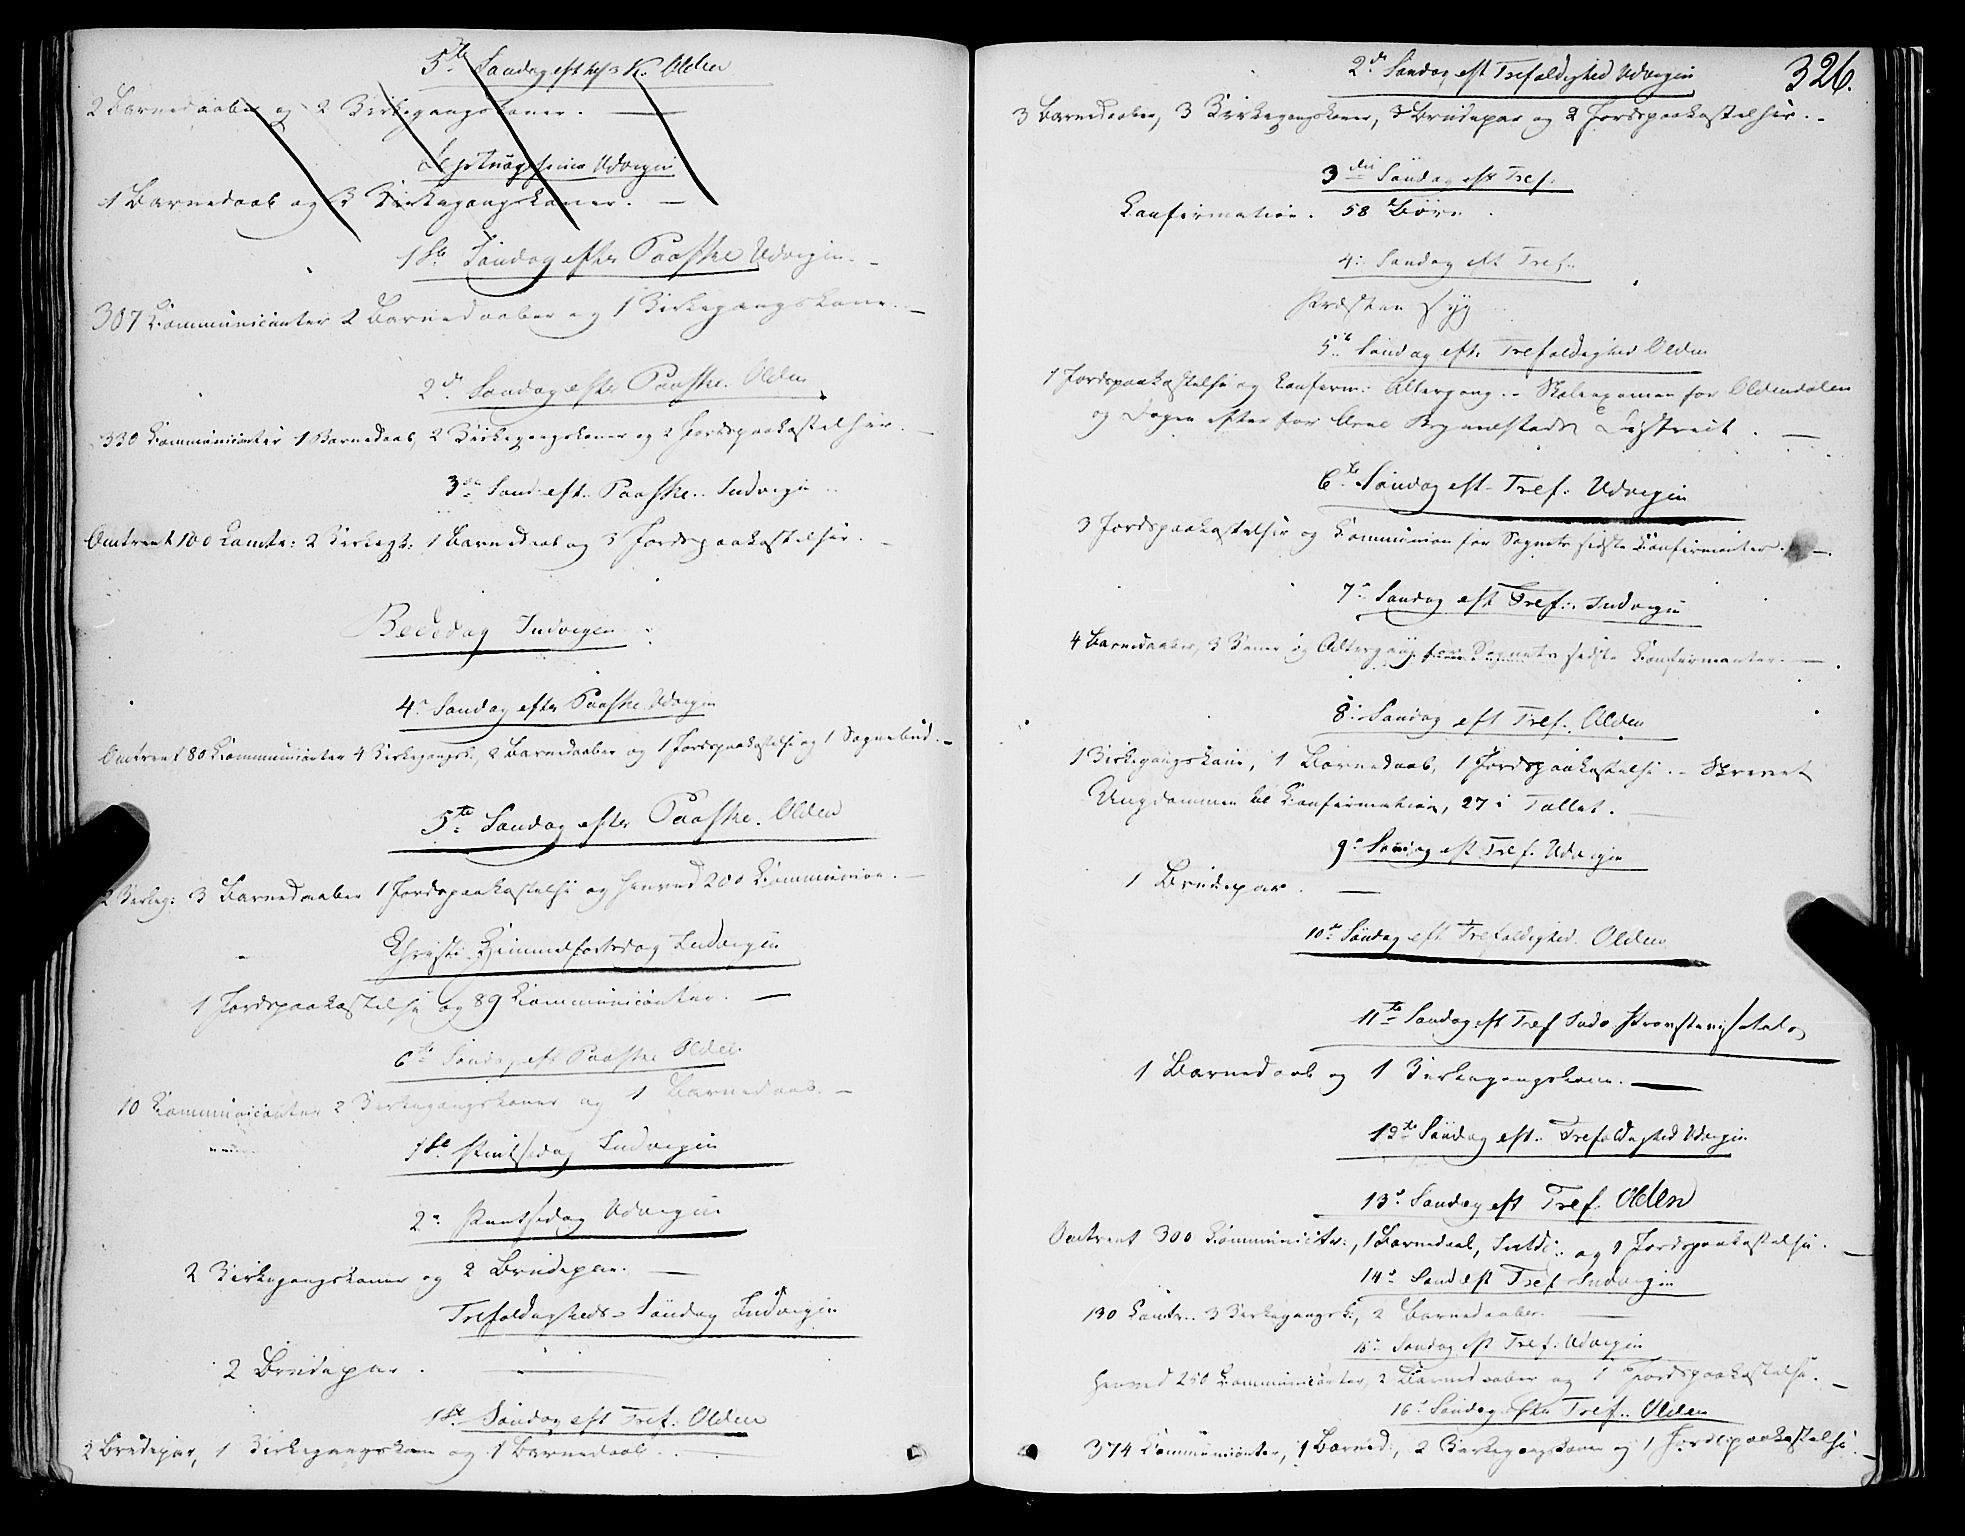 5te Søndag eft h 3 K. Olden
2 Barnedaaber og 2 Kirkegangskoner. —
Septuagesima Udvigen
1 Barnedaab og 3 Kirkegangskoner. —
1ste Søndag efter Paaske Udvigen. –
307 Communicanter 2 Barnedaaber og 1 Kirkegangskone. –
2den Søndag efter Paaske. Olden
330 Communicanter 1 Barnedaab, 2 Kirkegangskoner og 2 Jordspaakastelser. –
3die Sønd: eft. Paaske. Indvigen
Omtrent 100 Comte: 2 Kirkegk: 1 Barnedaab og 5 Jordspaakastelser. –
Bededag Indvigen
4. Søndag efter Paaske Udvigen
Omtrent 80 Communicanter 4 Kirkegangsk., 2 Barnedaaber og 1 Jordspaakastelse og 1 Sognebud. –
5te Søndag efter Paaske. Olden
2 Kirkeg: 3 Barnedaaber 1 Jordspaakastelse og henved 200 Communion. –
Christi Himmelfartsdag Indvigen
1 Jordspaakastelse og 89 Communicanter. —
6te Søndag eft Paaske Olden.
10 Communicanter 2 Kirkegangskoner og 1 Barnedaab. –
1ste Pintsedag Indvigen
2. Pintsedag Udvigen
2 Kirkegangskoner og 2 Brudepar. —
Trefoldigheds-Søndag Indvigen
2 Brudepar.
1ste Søndag eft Tref: Olden
2 Brudepar, 1 Kirkegangskone og 1 Barnedaab. —
326.
2de Søndag eft Trefoldighed Udvigen
3 Barnedaaber, 3 Kirkegangskoner, 3 Brudepar og 2 Jordspaakastelser. –
3die Søndag eft Tref.
Confirmation. 58 Børn.
4: Søndag eft Tref.
Præsten syg
5te Søndag eft. Trefoldighed Olden
1 Jordspaakastelse og Conferm: Altergang. – Skoleexamen for Oldendalen
og Dagen efter for District. —
6te Søndag eft Tref: Udvigen
3 Jordspaakastelser og Communion for Sognets sidste Confirmanter. –
7. Søndag eft Tref: Indvigen
4 Barnedaaber, 3 Koner og Altergang for Sognets sidste Confirmanter. —
8: Søndag eft Tref. Olden
1 Kirkegangskone, 1 Barnedaab, 1 Jordspaakastelse. – Skrevet
Ungdommen til Confirmation, 27 i Tallet. —
9. Søndag eft Tref. Udvigen
1 Brudepar. —
10de Søndag eft Trefoldighed. Olden
11te Søndag eft Tref
1 Barnedaab og 1 Kirkegangskone. —
12te Søndag eft. Trefoldighed Udvigen
13. Søndag eft Tref. Olden
Omtrent 300 Communicter:, 1 Barnedaab, og 1 Jordspaakastelse. –
14. Sønd eft Tref Indvigen
130 Comtr.. 3 Kirkegangsk:, 2 Barnedaaber. —
15. Søndag eft Tref. Udvigen
Henved 250 Communicanter, 2 Barnedaaber og 1 Jordspaakastelse. –
16. Søndag efter Tref.. Olden
374 Communicanter, 1 Barned:, 2 Kirkegangskoner og 1 Jordspaakastelse. –